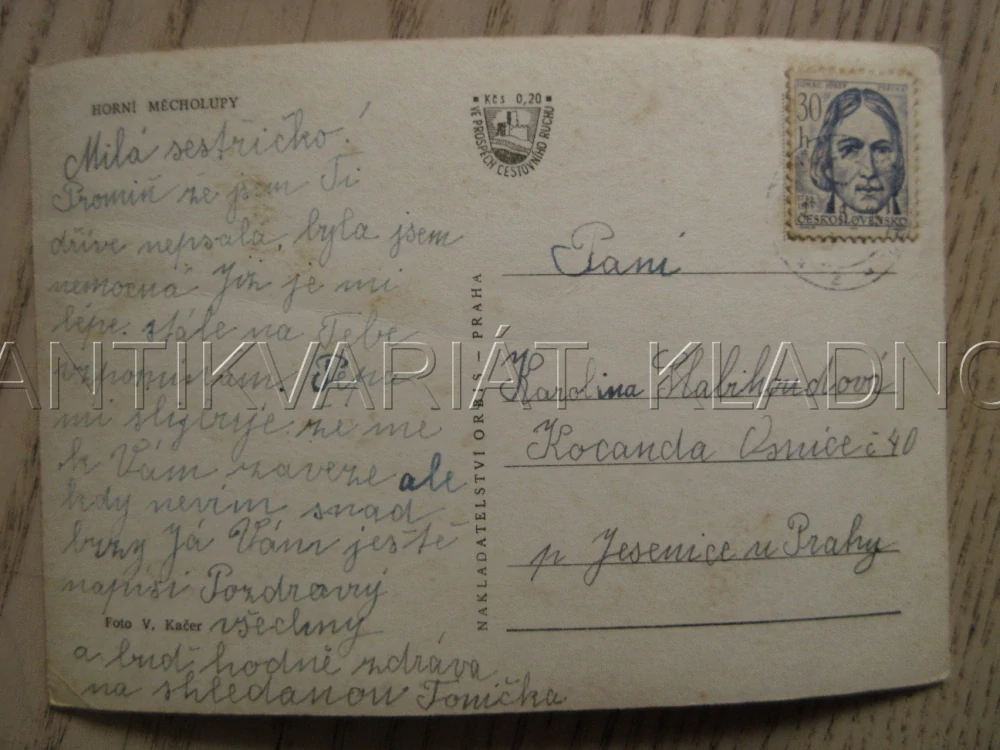 HORNÍ MĚCHOLUPY
Milá sestřičko!
Promiň že jsem Ti
dříve nepsala, byla jsem
nemocná Již je mi
lépe. stále na Tebe
vzpomínám. Pepa
mi slibuje že mě
k Vám zaveze ale
kdy nevím snad
brzy Já Vám ještě
napíši Pozdravuj
Foto V. Kačer všechny
a buď hodně zdráva
na shledanou Tonička
Kčs 0,20
VE PROSPĚCH CESTOVNÍHO RUCHU
NAKLADATELSTVÍ ORBIS – PRAHA
30 h
ČESKOSLOVENSKO
Paní
Karolina Slabihoudová
Kocanda Osnice č 40
p Jesenice u Prahy
ANTIKVARIÁT KLADNO